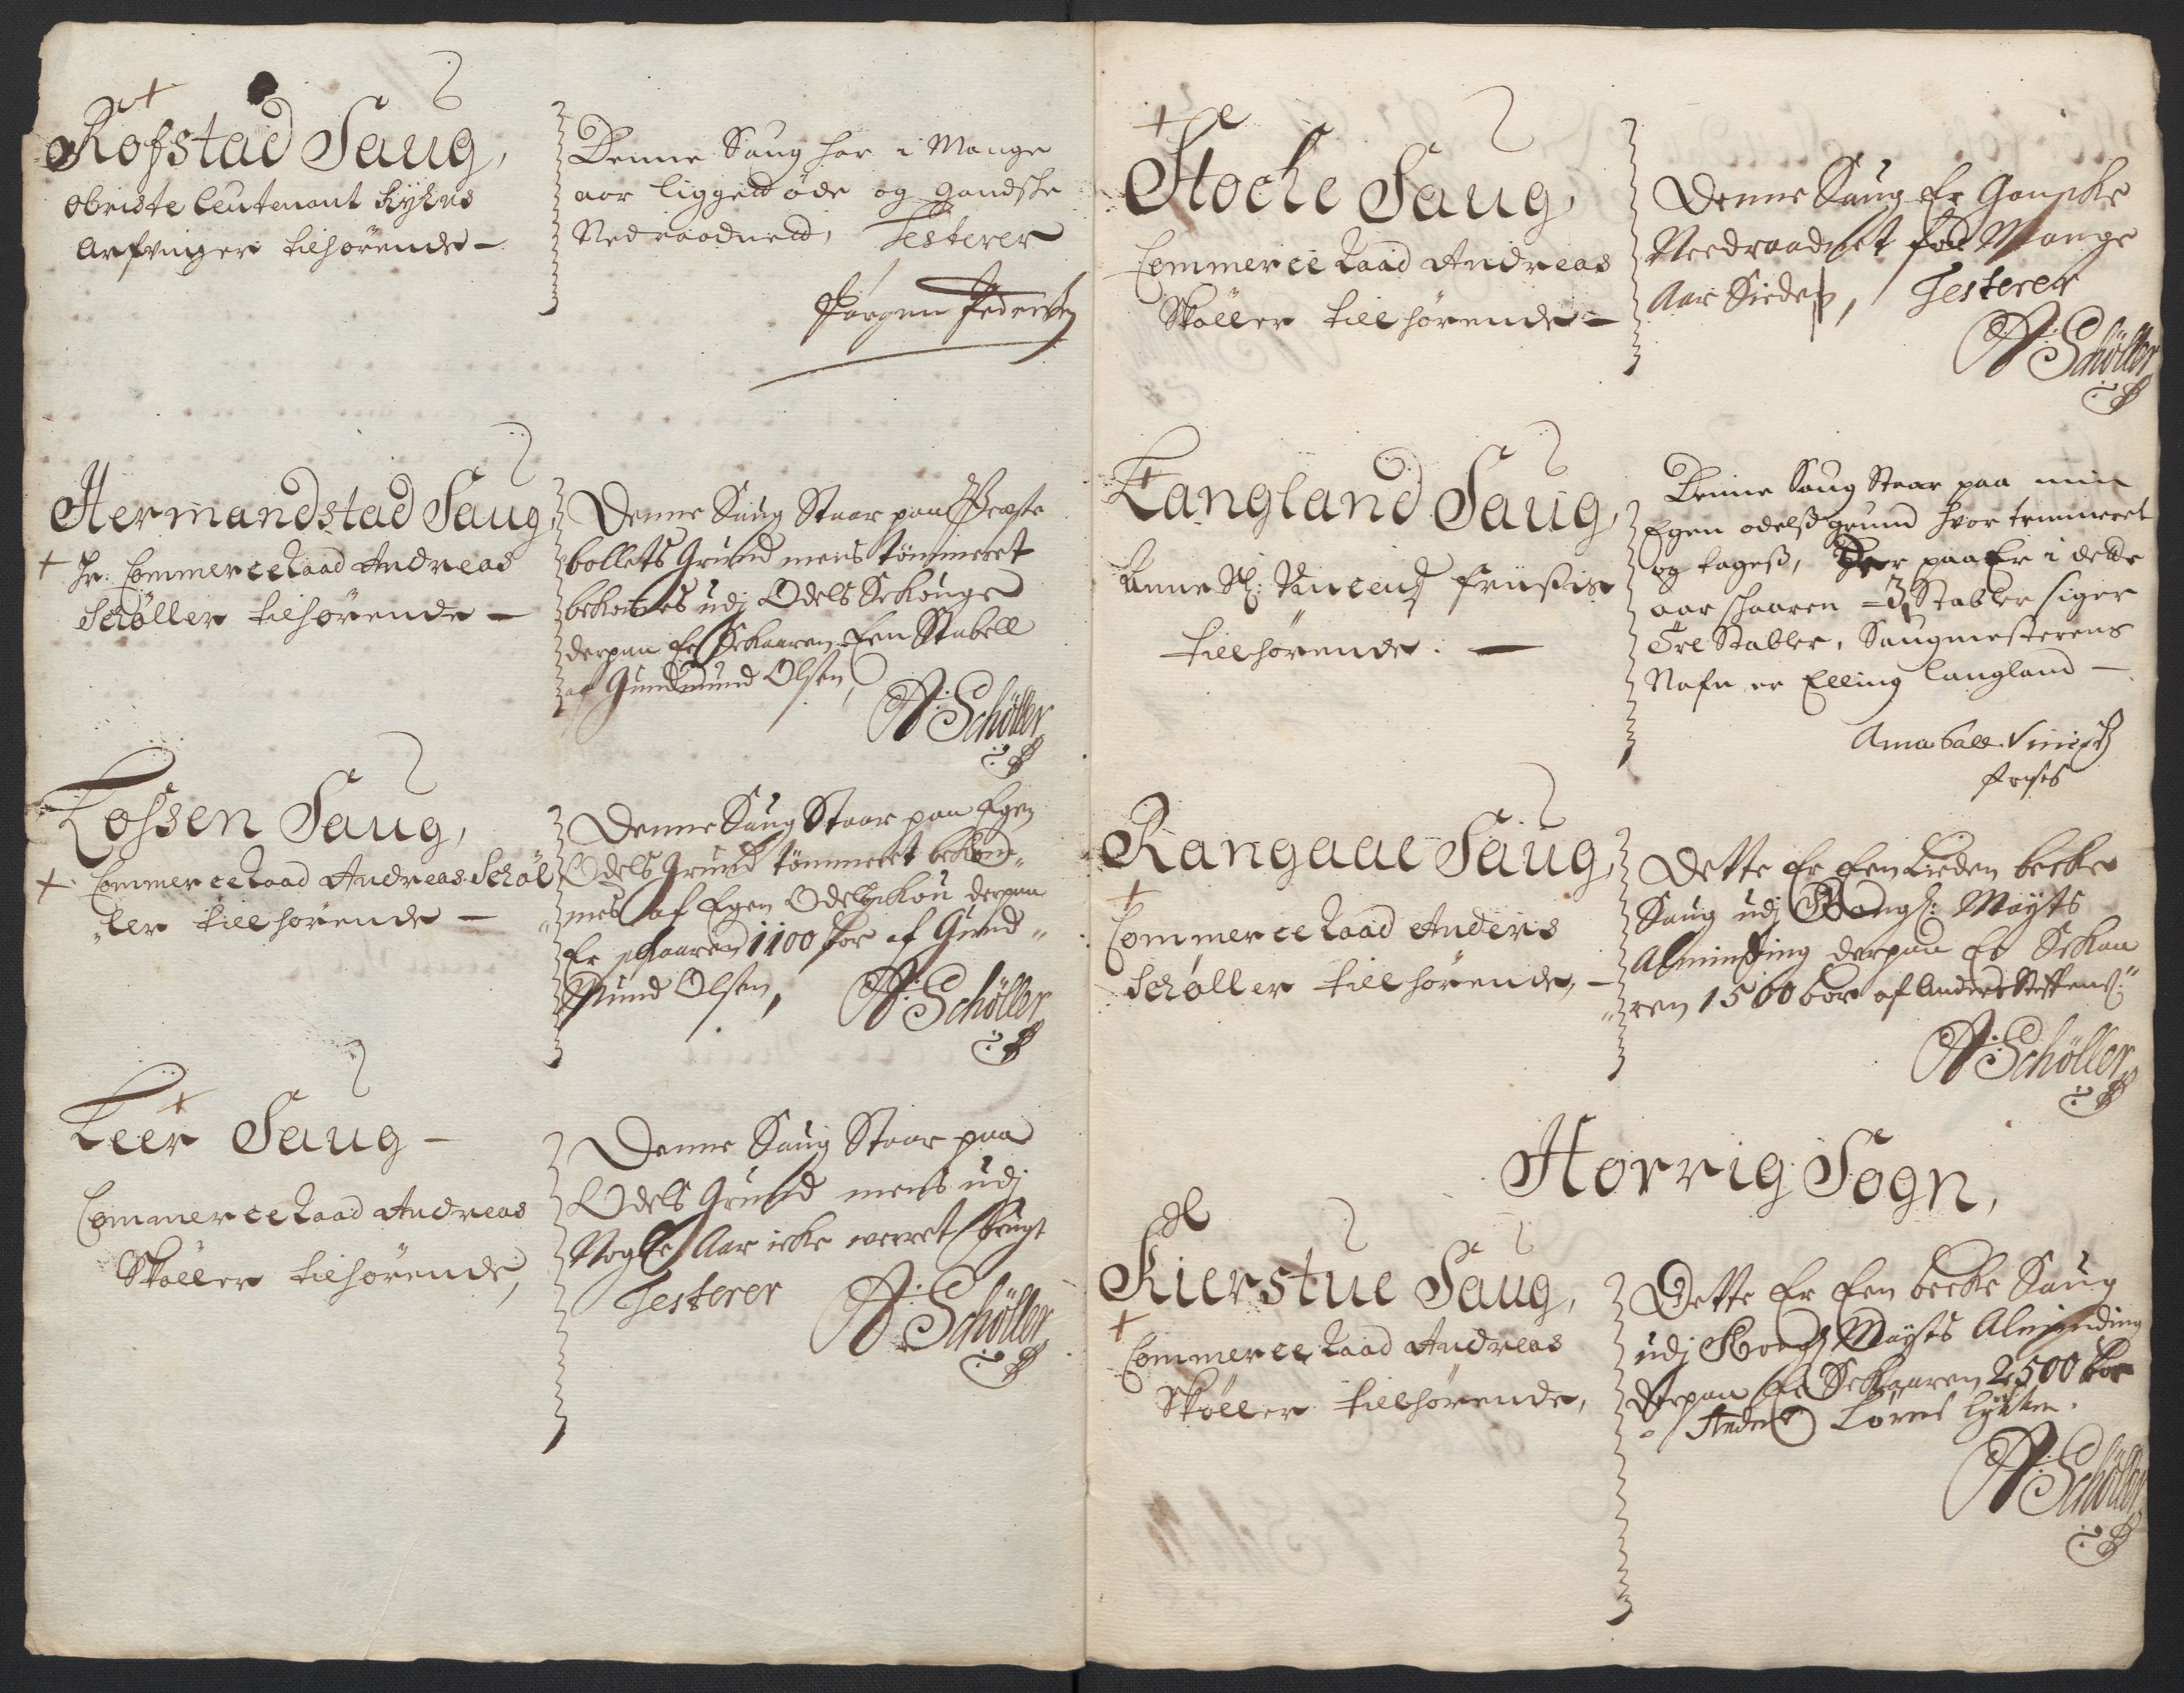 Rofstad Saug,
Obriste leutenant
Arfvinger tilhørende —
Denne Saug har i Mange
aar ligget øde og gandske
Nedraadned, Testerer
Jørgen Pedersen
Hermandstad Saug,
Hr: Commerce Raad Andreas
Schøller tilhørende —
Denne Saug Staar paa Præste
bollets Grund mens tømmeret
bekomes udj Odels Skouge
derpaa Er Skaaren Een Stabell
af Gundmund Olsen,
A: Schøller
Fossen Saug,
Commerce Raad Andreas Schøl
"ler tilhørende —
Denne Saug Staar paa Egen
Odels Grund tømmeret bekom"
"mes af Egen Odelskou derpaa
Er skaaren 1100 bor af Gund"
Mund Olsen,
A: Schöller
Leer Saug —
Commerce Raad Andreas
Skøller tilhørende,
Denne Saug Staar paa
Odels Grund mens udj
Nogle Aar icke verret brugt
Testerer
A: Schöller
Stocke Saug,
Commerce Raad Andreas
Skøller tillhørende —
Denne Saug Er Ganske
Needraadnet for Mange
Aar Siden, Testerer
A: Schöller
Langland Saug,
Anne Sl:
tillhørende. —
Denne Saug Staar paa min
Egen odelss grund hvor tømmeret
og tagess, Der paa Er i dette
aar schaaren = 3 Stabler siger
Tre Stabler, Saugmesterens
Nafn er Elling Langland —
Rangaae Saug,
Commerce Raad Anders
Schøller tillhørende, —
Dette Er Een Liden becke
Saug udj Kongl: Mayts
Alminding derpaa Er Skaa
"ren 1500 bor af Anders Steffens:
A: Schöller
Horrig Sogn,
Kierstue Saug,
Commerce Raad Andreas
Skøller tillhørende,
Dette Er Een becke Saug
udj Kongl Mayts Alminding
Derpaa Er Skaaren 2500 bor
A: Schöller